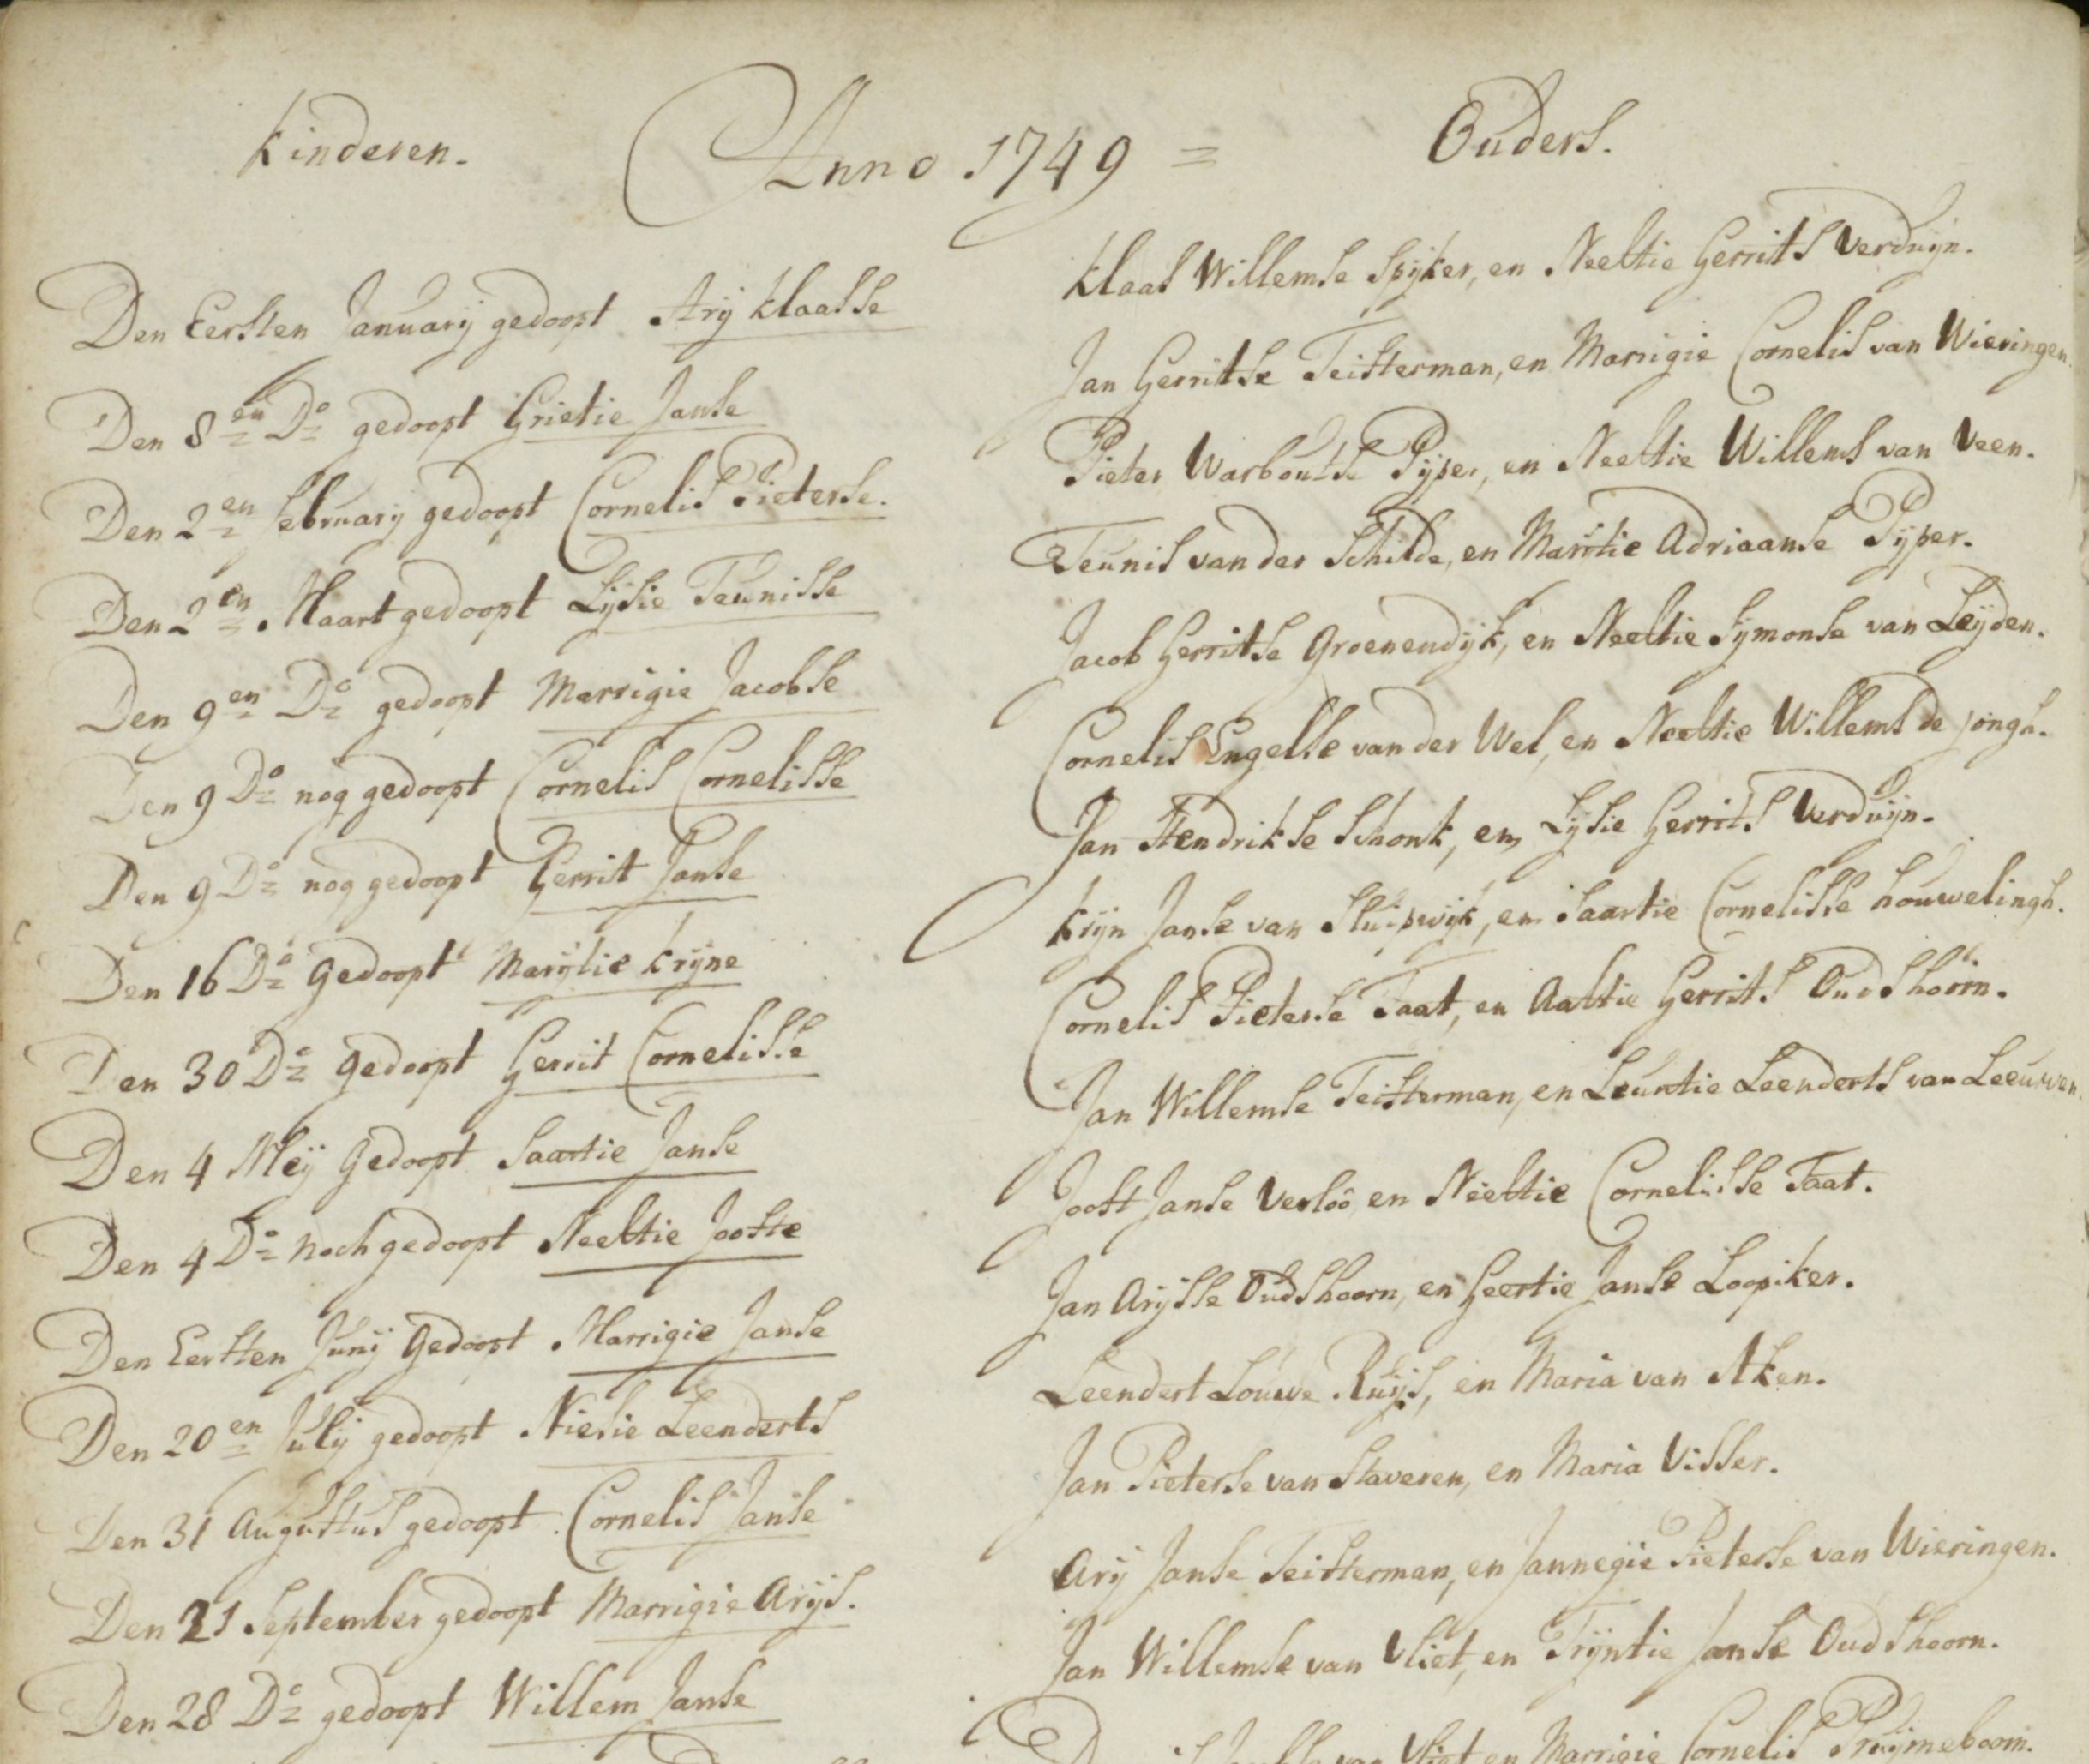 Kinderen. Anno 1749 = Ouders.
Den Eersten January gedoopt Arij Klaasse
Klaas Willemse Spijker, en Neeltie Gerrits Verduijn.
Den 8en Do gedoopt Grietie Janse
Jan Gerritse Teisterman, en Marrigie Cornelis van Wieringen.
Den 2en February gedoopt Cornelis Pieterse.
Pieter Warboutse Pijper, en Neeltie Willems van Veen.
Den 2en Maart gedoopt Lijsie Teunisse
Teunis van der Schilde, en Martie Adriaanse Pijper.
Den 9en Do gedoopt Marrigie Jacobse
Jacob Gerritse Groenendijk, en Neeltie Sijmonse van Leijden.
Den 9 Do nog gedoopt Cornelis Cornelisse
Cornelis Engelse van der Wel, en Neeltie Willems de jongh.
Den 9 Do nog gedoopt Gerrit Janse
Jan Hendrikse Schonk, en Lijsie Gerrits Verduijn.
Den 16 Do Gedoopt Marijtie Krijne
Krijn Janse van Sluipwijk, en Saartie Cornelisse houwelingh.
Den 30 Do Gedoopt Gerrit Cornelisse
Cornelis Pieterse Taat, en Aaltie Gerrits Oudshoorn.
Den 4 Meij Gedoopt Saartie Janse
Jan Willemse Teisterman, en Leuntie Leenderts van Leeuwen.
Den 4 Do noch gedoopt Neeltie Jooste
Joost Janse Verloô en Neeltie Cornelisse Taat.
Den Eersten Junij Gedoopt Marrigie Janse
Jan Arijsse Oudshoorn, en Geertie Janse Loopiker.
Den 20en Julij gedoopt Niesie Leenderts
Leendert Louwe Ruijs, en Maria van Aken.
Den 31 Augustus gedoopt Cornelis Janse
Jan Pieterse van Staveren, en Maria Visser.
Den 21 September gedoopt Marrigie Arijs.
Arij Janse Teisterman, en Jannegie Pieterse van Wieringen.
Den 28 Do gedoopt Willem Janse
Jan Willemse van Vliet, en Trijntie Janse Oudshoorn.
van Vliet en Marrigie Cornelis Pruijmeboom.